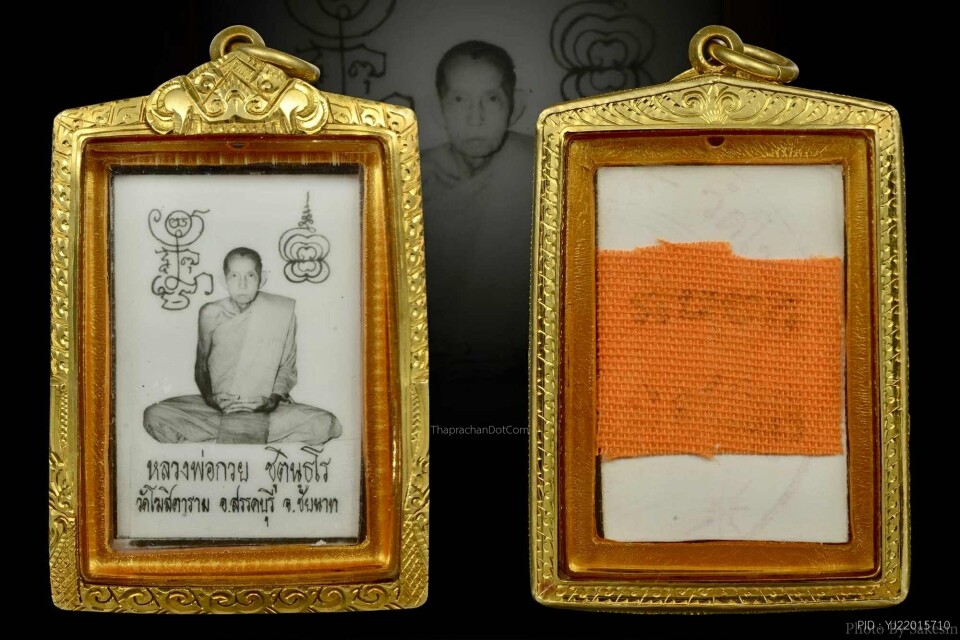 หลวงพ่อกวย ชุตินฺธโร
วัดโฆสิตาราม อ.สรรคบุรี จ.ชัยนาท
ThaprachanDotCom
PID : YJ22015710
Photo By Saksin